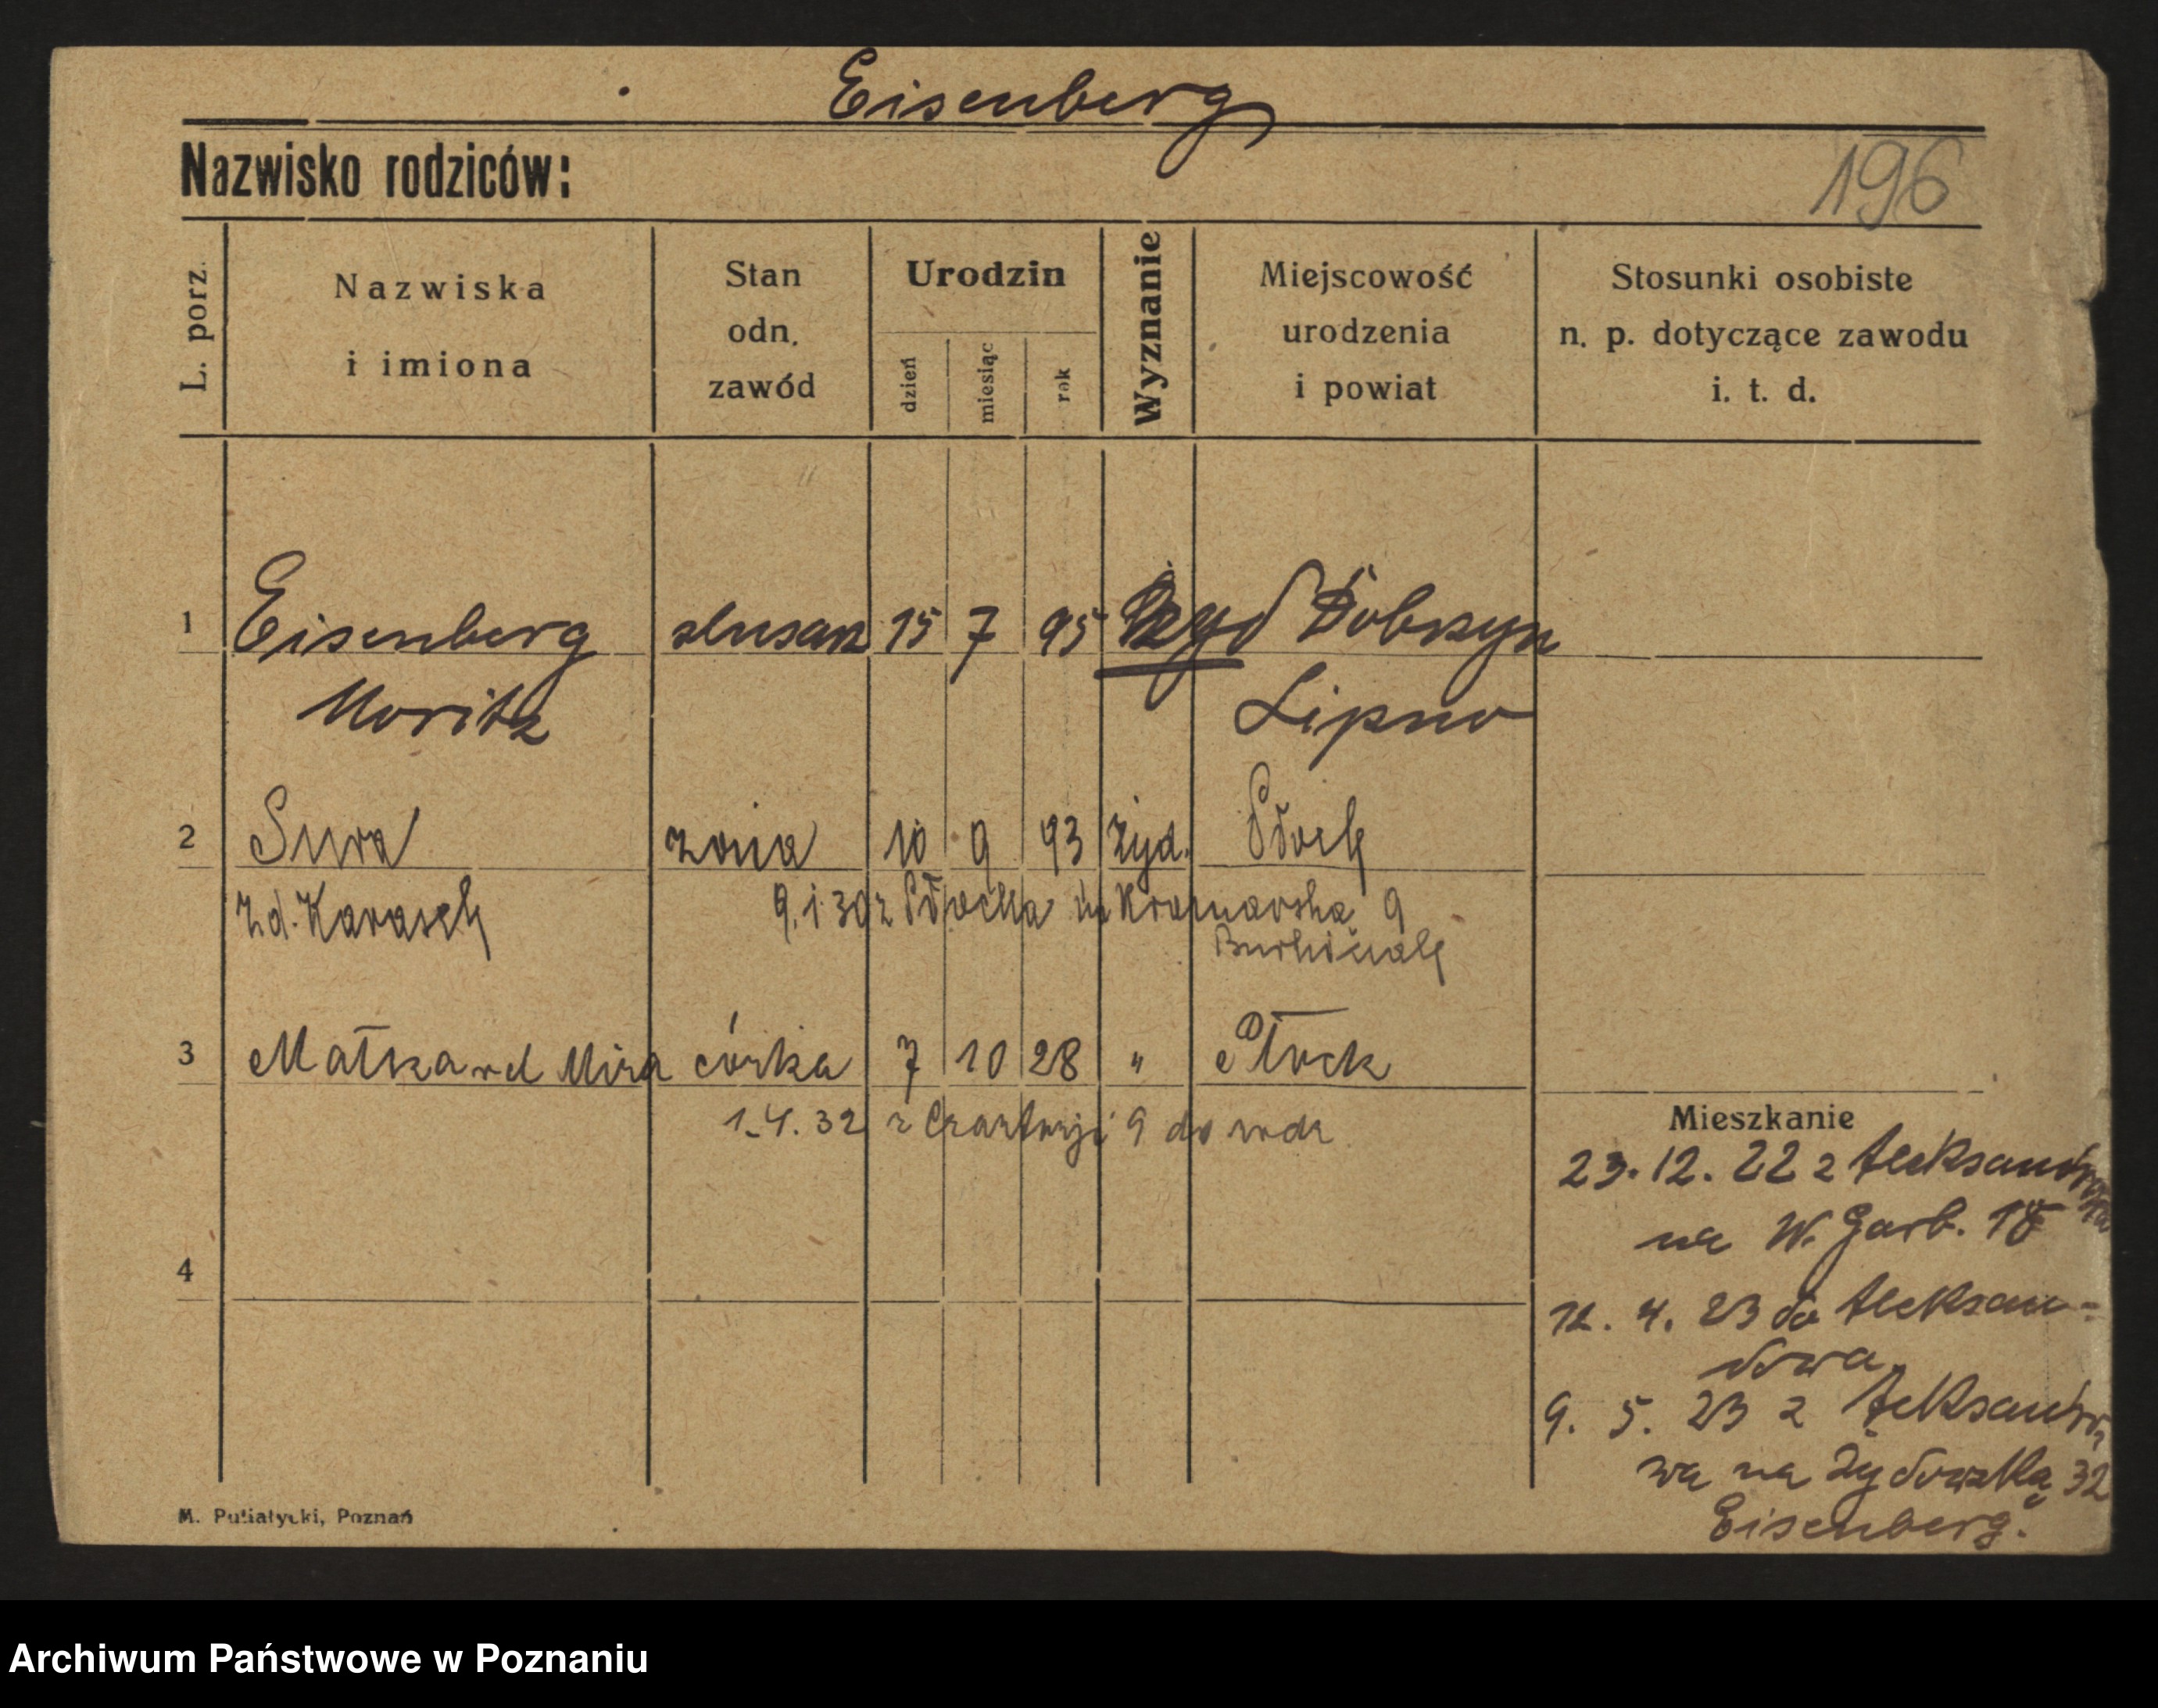 Eisenberg
Nazwisko rodziców:
196
L. porz.
Nazwiska
i imiona
Stan
odn.
zawód
Urodzin
dzień
miesiąc
rok
Wyznanie
Miejscowość
urodzenia
i powiat
Stosunki osobiste
n. p. dotyczące zawodu
i. t. d.
1 Eisenberg ślusarz 15 7 95 Żyd Dobrzyn
Moritz Lipno
2 Sura żona 10 9 93 żyd. Płock
zd. Karasek 9.1.30 z Płocka na 9
3 Małka vel Mira córka 7 10 28 " Płock
1.4.32 z 9 do
Mieszkanie
23.12.22 z Aleksandrowa
na W. Garb. 18
12. 4. 23 do Aleksan-
drowa
9. 5. 23 z Aleksandro
wa na Żydowską 32
Eisenberg.
4
M. Putiatycki, Poznań
Archiwum Państwowe w Poznaniu